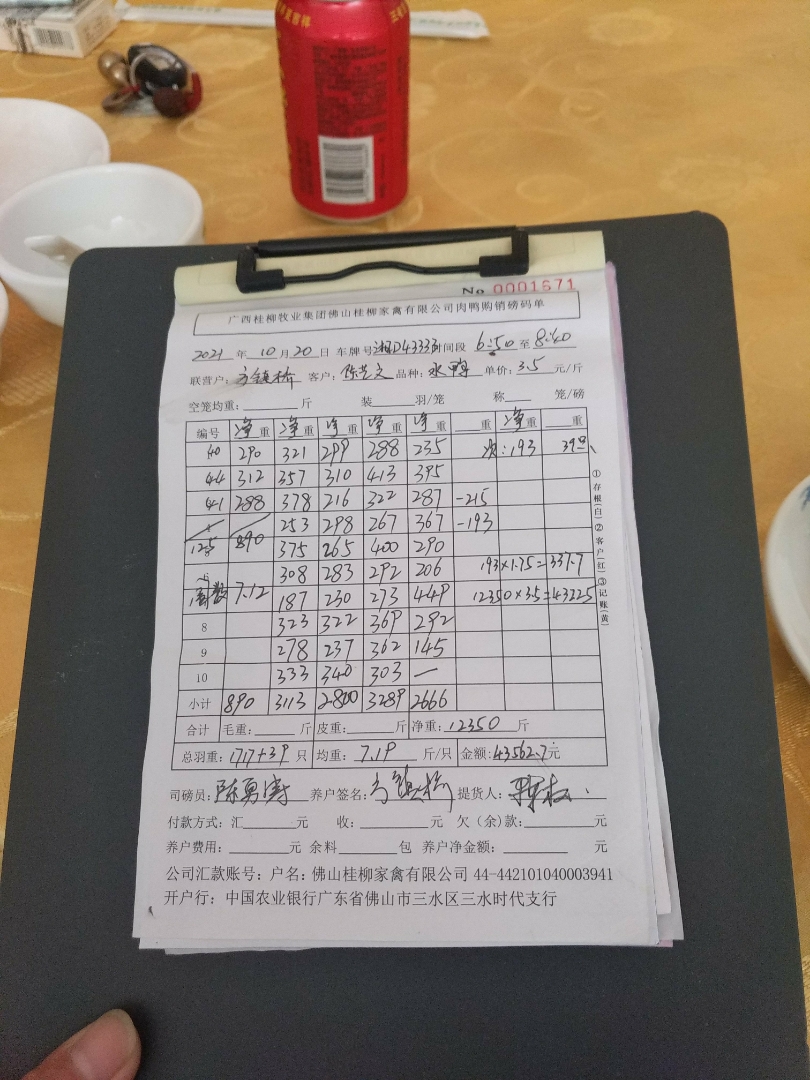 No 0001671
广西桂柳牧业集团佛山桂柳家禽有限公司肉鸭购销磅码单
2021 年 10 月 20 日 车牌号 时间段 6:50 至 8:40
联营户: 客户: 品种:水鸭 单价:3.5 元/斤
空笼均重: 斤 装 羽/笼 称 笼/磅
编号 净重 净重 净重 净重 净重 重 净重 重
40 290 321 299 288 235 :193 39只
44 312 357 310 413 395
41 288 378 216 322 287 -215
253 298 267 367 -193
125 890 375 265 400 290
308 283 292 206 193×1.75=337.7
周数 7.12 187 230 273 449 12350×3.5=43225
8 323 322 369 292
9 278 237 362 145
10 333 340 303 —
小计 890 3113 2800 3289 2666
合计 毛重: 斤 皮重: 斤 净重:12350 斤
总羽重:1717+39 只 均重:7.19 斤/只 金额:43562.7元
司磅员: 养户签名: 提货人:
付款方式:汇 元 收: 元 欠(余)款: 元
养户费用: 元 余料 包 养户净金额: 元
公司汇款账号:户名:佛山桂柳家禽有限公司 44-442101040003941
开户行:中国农业银行广东省佛山市三水区三水时代支行
①存根(白)②客户(红)③记账(黄)